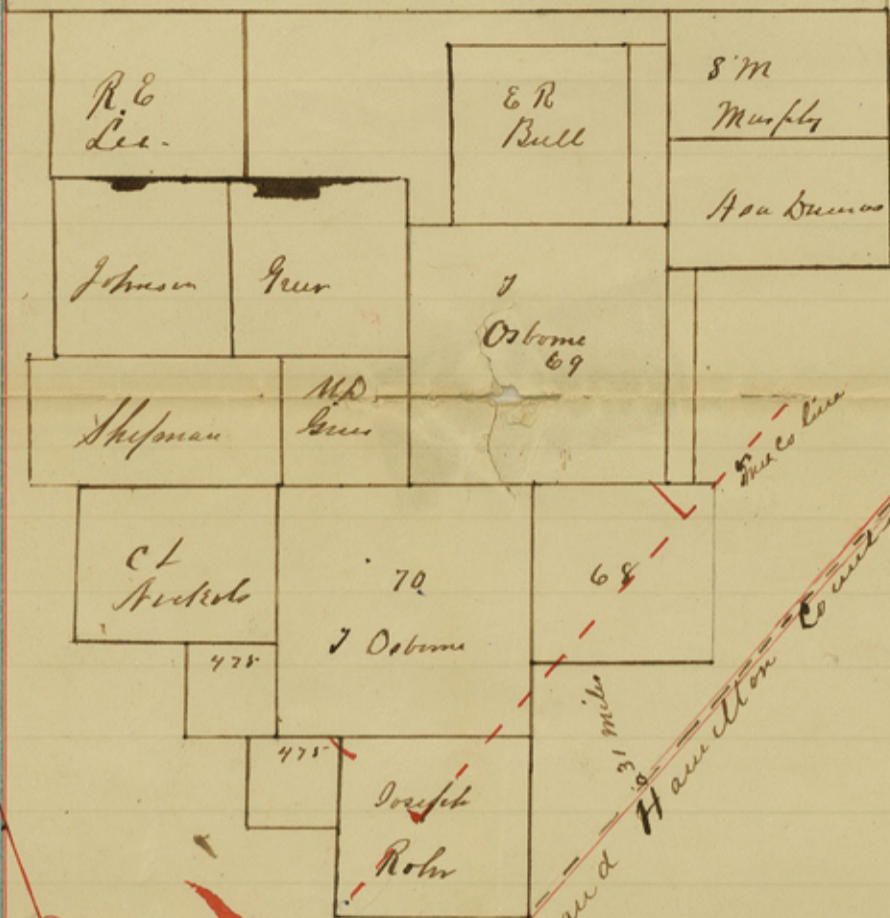 R. E
Lee.
E R
Bull
S M
Murphy
Johnson
Greer
J
Osborne
69
Shipman
M D
Greer
True Co line
C L
Nickols
70
J Osborne
68
475
475
31 miles
Joseph
Rohr
and Hamilton Count